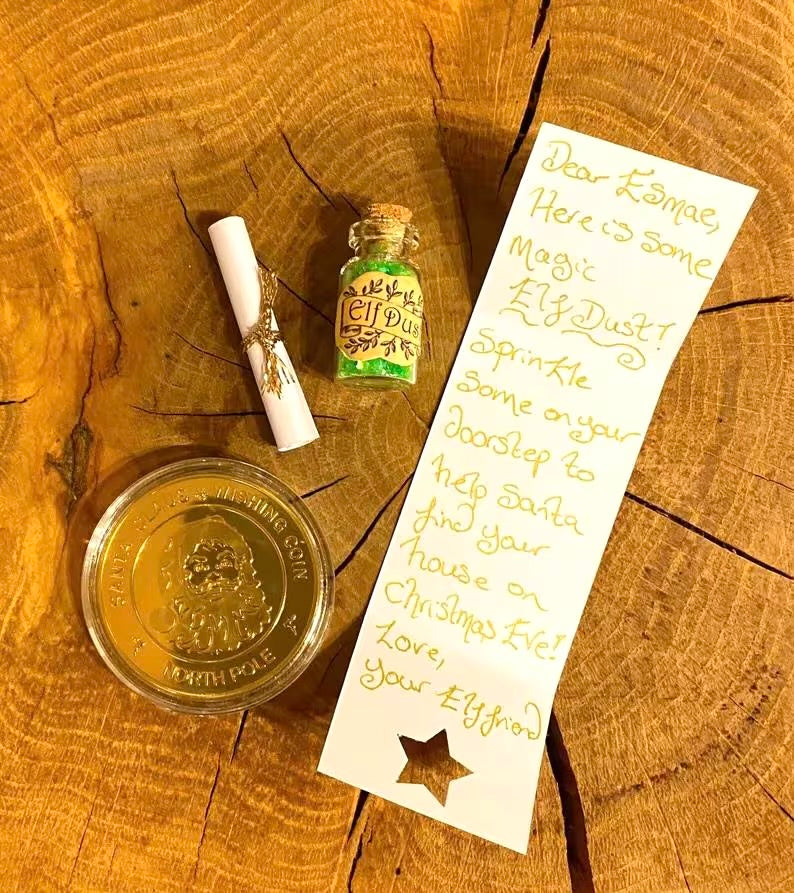 Dear Esmae,
Here is some
Magic
Elf Dust!
Sprinkle
some on your
doorstep to
help Santa
find your
house on
Christmas Eve!
Love,
Your Elf friend
Elf Dus
SANTA CLAUS WISHING COIN
NORTH POLE